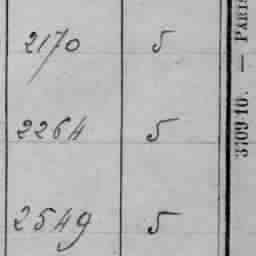 2170 5
2264 5
2549 5
3709-10. — PARIS